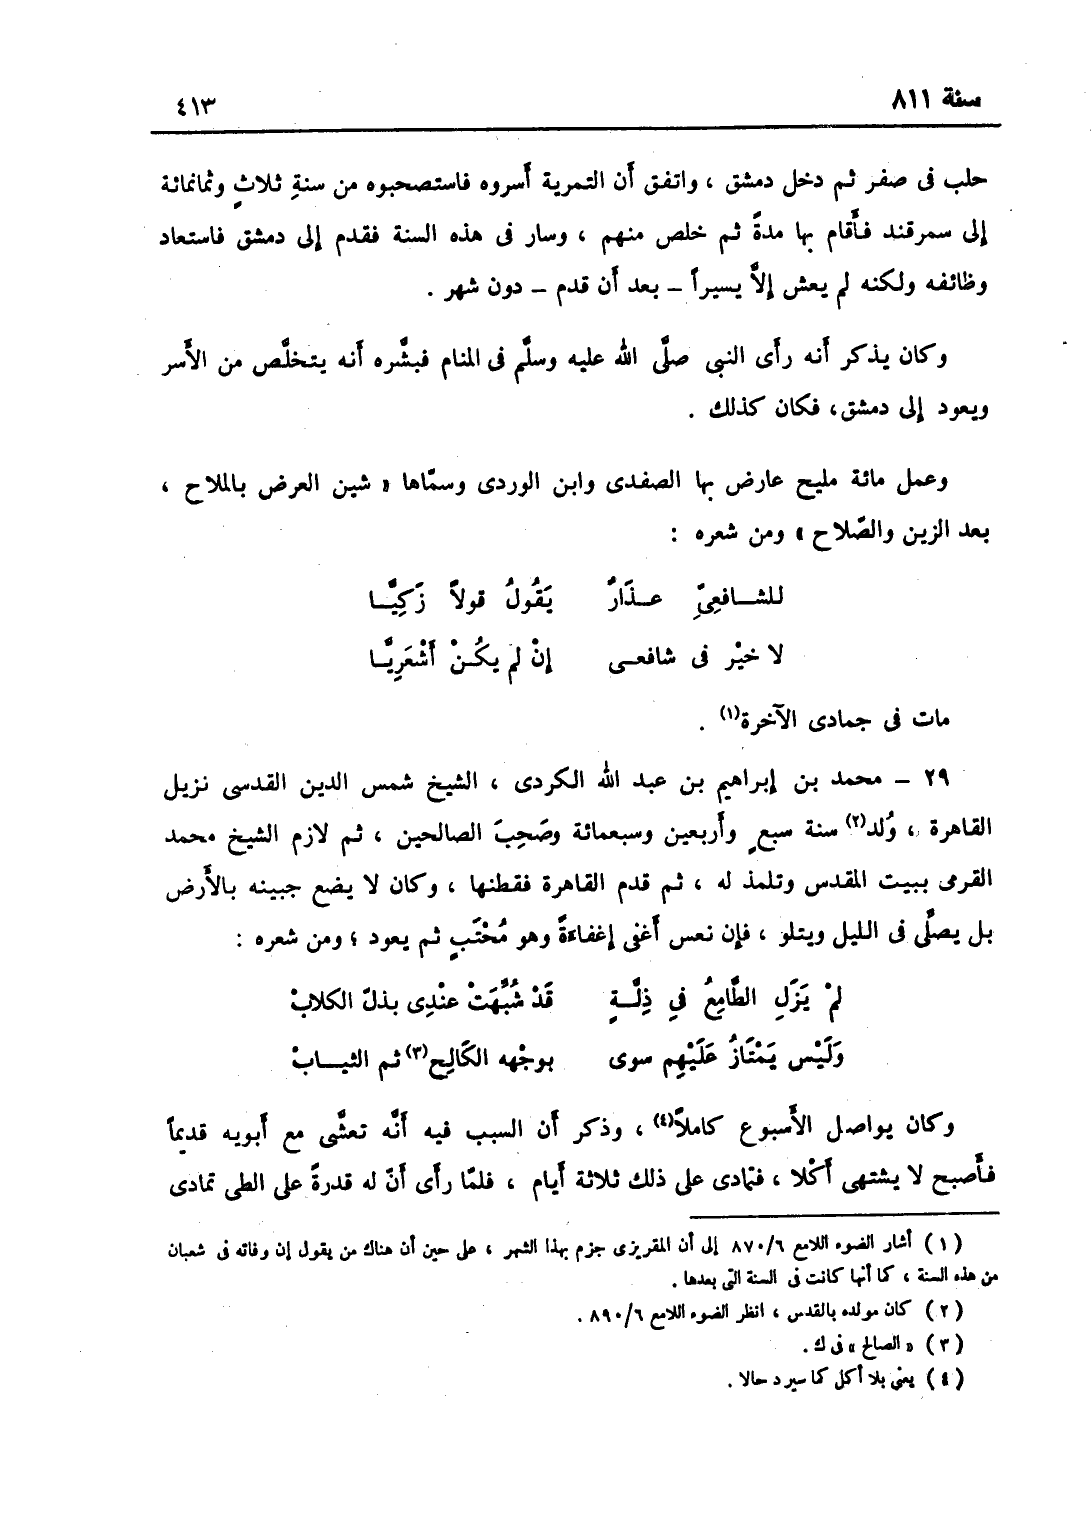 سنة ٨١١
٤١٣
حلب فى صفر ثم دخل دمشق ، واتفق أن التمرية أسروه فاستصحبوه من سنةِ ثلاثٍ وثمانمائة
إلى سمرقند فأَقام بها مدةً ثم خلص منهم ، وسار فى هذه السنة فقدم إلى دمشق فاستعاد
وظائفه ولكنه لم يعش إلاَّ يسيراً – بعد أن قدم – دون شهر .
وكان يذكر أَنه رأى النبى صلَّى الله عليه وسلَّم فى المنام فبشَّره أَنه يتخلَّص من الأَسر
ويعود إلى دمشق، فكان كذلك .
وعمل مائة مليح عارض بها الصفدى وابن الوردى وسمّاها « شين العرض بالملاح ،
بعد الزين والصّلاح » ومن شعره :
للشـــافعِىِّ عــذَارٌ يَقُولُ قولاً زَكِيَّــا
لا خيْر فى شافعــى إنْ لم يكُـنْ أَشْعَرِيَّــا
مات فى جمادى الآخرة(١) .
٢٩ – محمد بن إبراهيم بن عبد الله الكردى ، الشيخ شمس الدين القدسى نزيل
القاهرة ، وُلد(٢) سنة سبعٍ وأَربعين وسبعمائة وصَحِبَ الصالحين ، ثم لازم الشيخ محمد
القرمى ببيت المقدس وتلمذ له ، ثم قدم القاهرة فقطنها ، وكان لا يضع جبينه بالأَرض
بل يصلِّى فى الليل ويتلو ، فإن نعس أغفى إغفاءةً وهو مُحْتَبٍ ثم يعود ؛ ومن شعره :
لمْ يَزَلِ الطَّامِعُ فى ذِلَّــةٍ قَدْ شُبِّهَتْ عنْدِى بذلّ الكلابْ
وَلَيْس يَمْتَازُ عَلَيْهِم سوى بوجْهه الكَالِح(٣) ثم الثيــابْ
وكان يواصل الأَسبوع كاملاً(٤) ، وذكر أَن السبب فيه أنَّه تعشَّى مع أبويه قديماً
فأَصبح لا يشتهى أَكْلا ، فتمادى على ذلك ثلاثة أيام ، فلمّا رأى أنّ له قدرةً على الطى تمادى
(١) أشار الضوء اللامع ٨٧٠/٦ إلى أن المقريزى جزم بهذا الشهر ، على حين أن هناك من يقول إن وفاته فى شعبان
من هذه السنة ، كما أنها كانت فى السنة التى بعدها .
(٢) كان مولده بالقدس ، انظر الضوء اللامع ٨٩٠/٦ .
(٣) « الصالح » فى ك .
(٤) يعنى بلا أكل كما سيرد حالا .